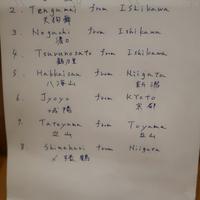 2. Tengumai from Ishikawa
天狗舞
3. Noguchi from Ishikawa
4. Tsurunosato from Ishikawa
鶴乃里
5. Hakkaisan from Niigata
八海山 新潟
6. Jyoyo from Kyoto
城陽 京都
7. Tateyama from Toyama
立山 立山
8. Shimeharitsuru from Niigata
〆張鶴